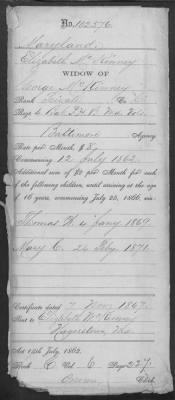 No. 102576
Maryland.
Elizabeth McKinney
WIDOW OF
George McKinney
Rank Private Co.
Regt.
Baltimore Agency
Rate per Month, $8,
Commencing 12 July 1862.
Additional sum of $2 per Month for each
of the following children, until arriving at the age
of 16 years, commencing July 25, 1866, viz:
Thomas H. 11 Jany 1869
Mary C. 24 Feby 1871
Certificate dated 7 Nov 1867
Sent to Elizabeth McKinney
Hagerstown, Md.
Act 14th July 1862.
Book C Vol. 6 Page 227.
Clerk.